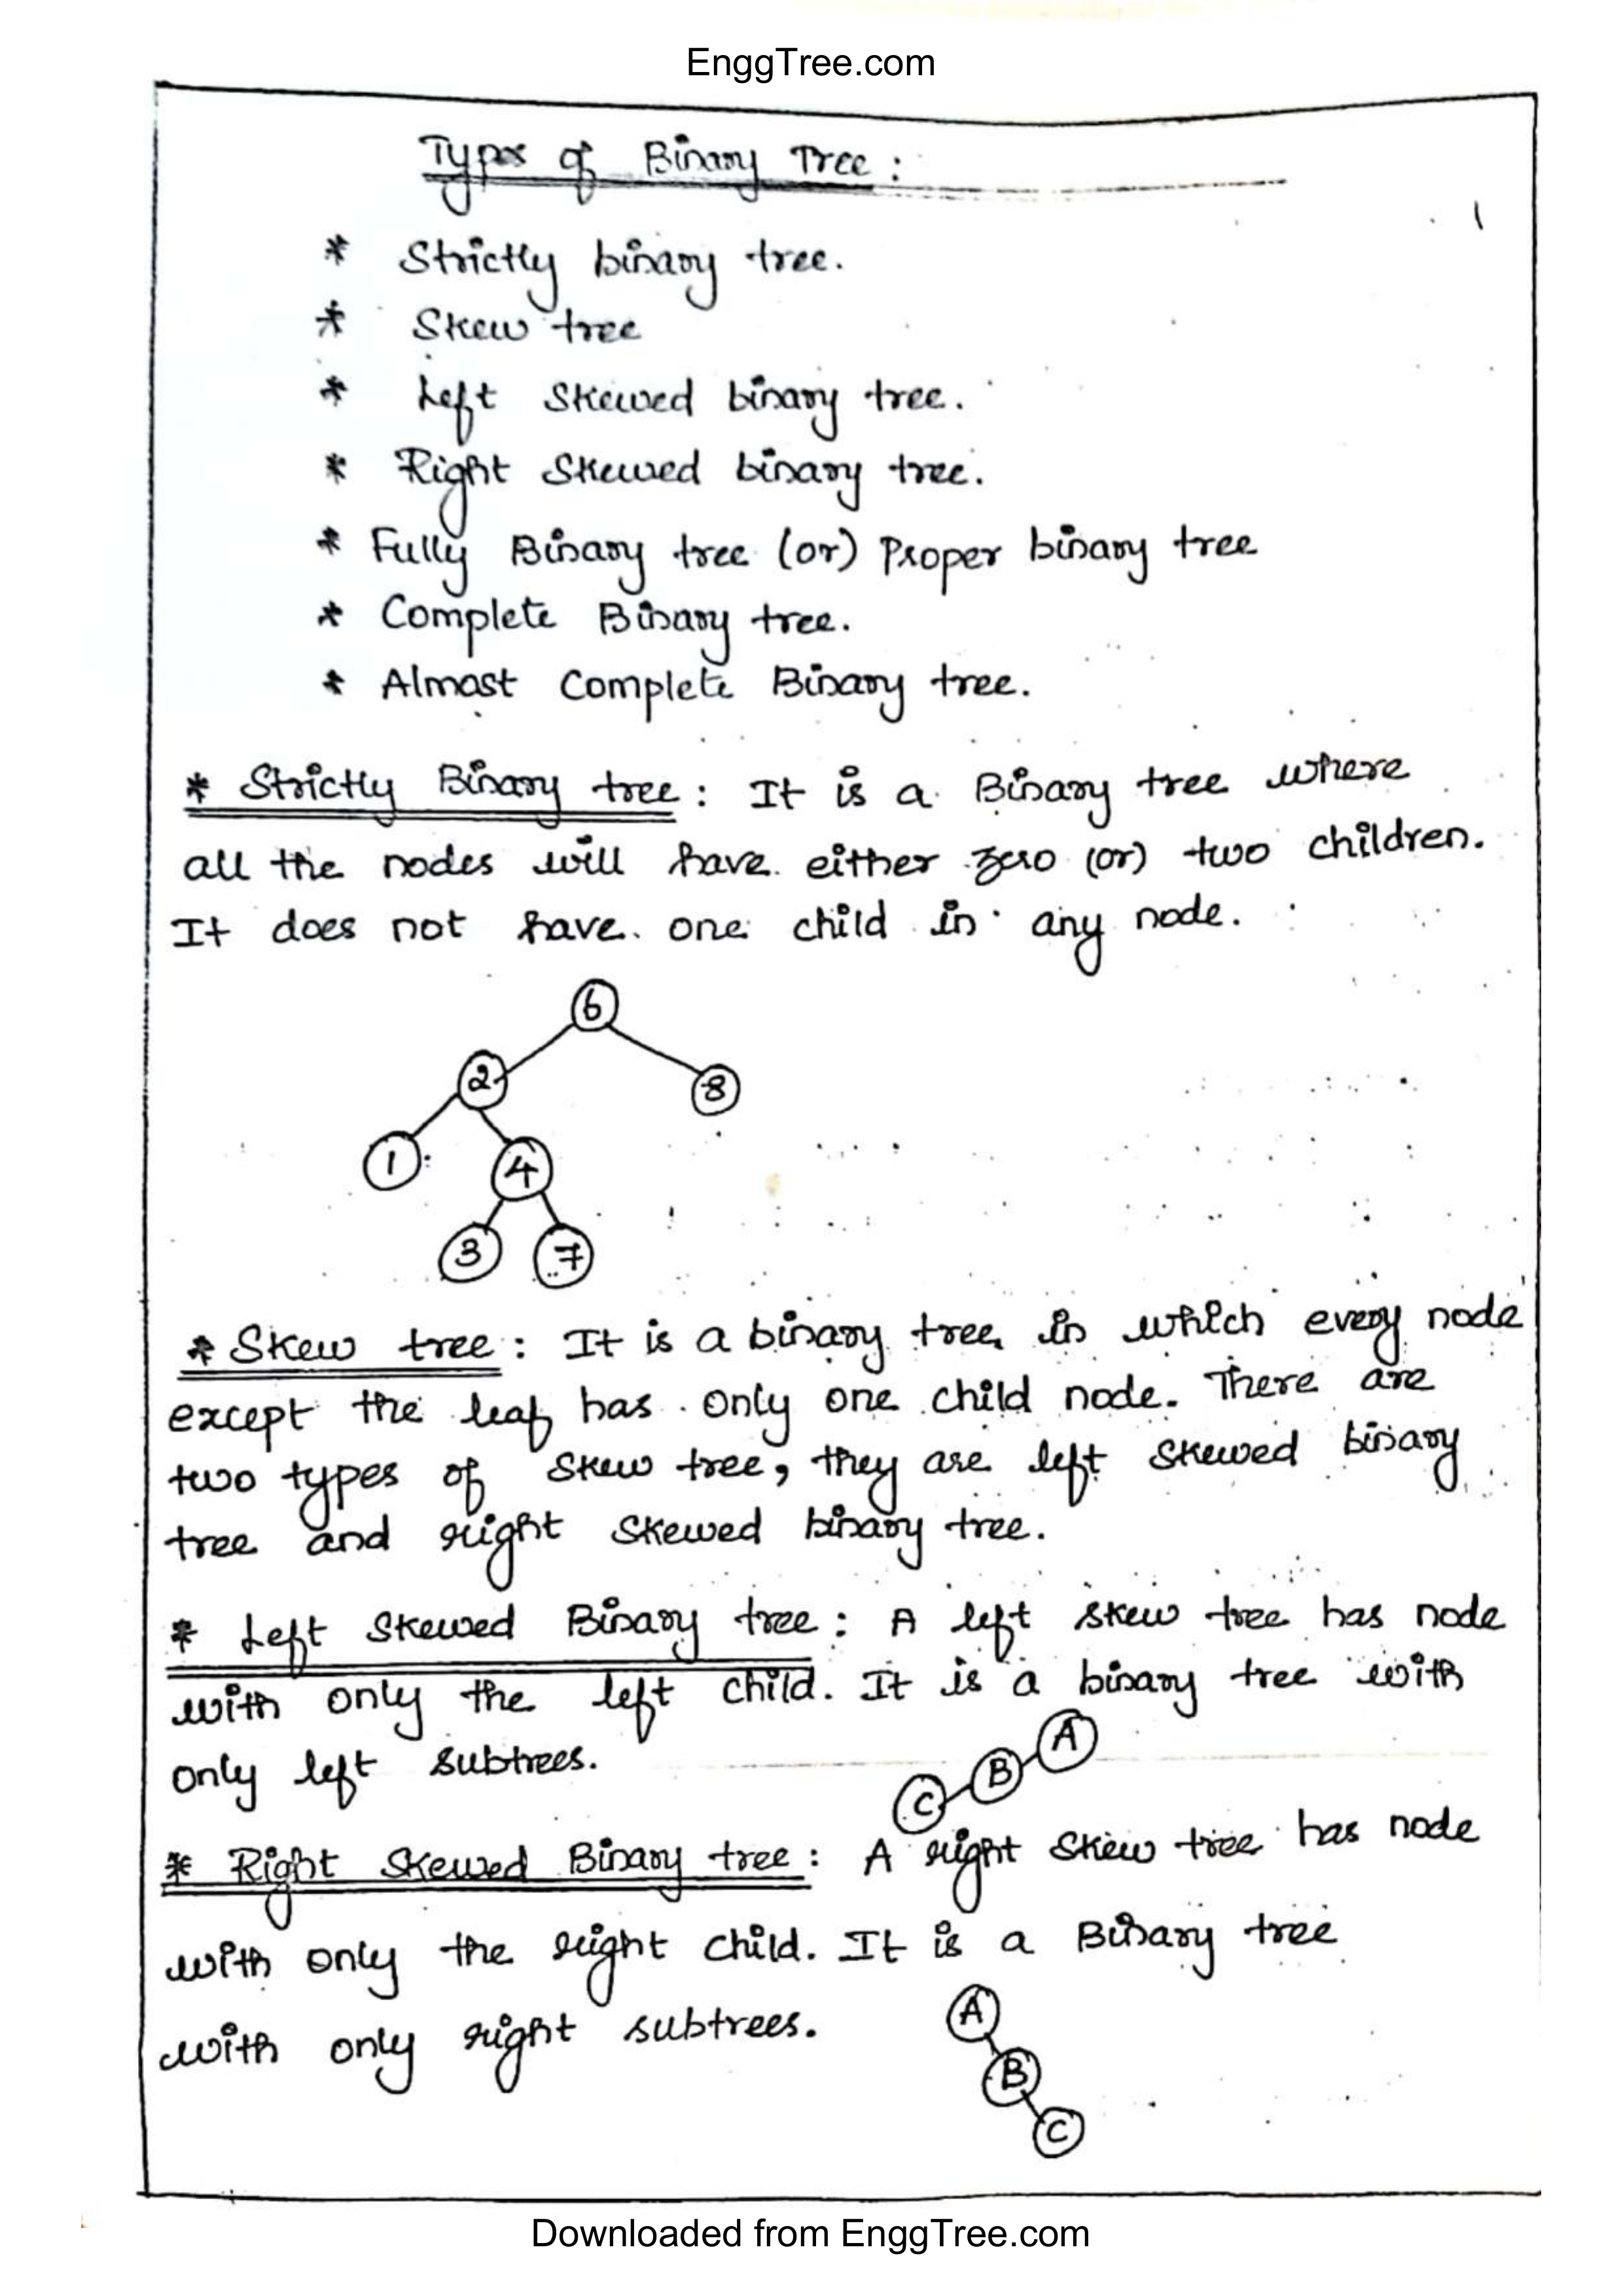 EnggTree.com
Types of Binary Tree :
* Strictly binary tree.
* Skew tree
* Left Skewed binary tree.
* Right Skewed binary tree.
* Fully Binary tree (or) Proper binary tree
* Complete Binary tree.
* Almost Complete Binary tree.
* Strictly Binary tree : It is a Binary tree where
all the nodes will have either zero (or) two children.
It does not have one child in any node.
6
2 8
1 4
3 7
* Skew tree : It is a binary tree in which every node
except the leaf has only one child node. There are
two types of Skew tree, they are left Skewed binary
tree and right Skewed binary tree.
* Left Skewed Binary tree : A left skew tree has node
with only the left child. It is a binary tree with
only left subtrees.
A
B
C
* Right Skewed Binary tree : A right Skew tree has node
with only the right child. It is a Binary tree
with only right subtrees.
A
B
C
Downloaded from EnggTree.com